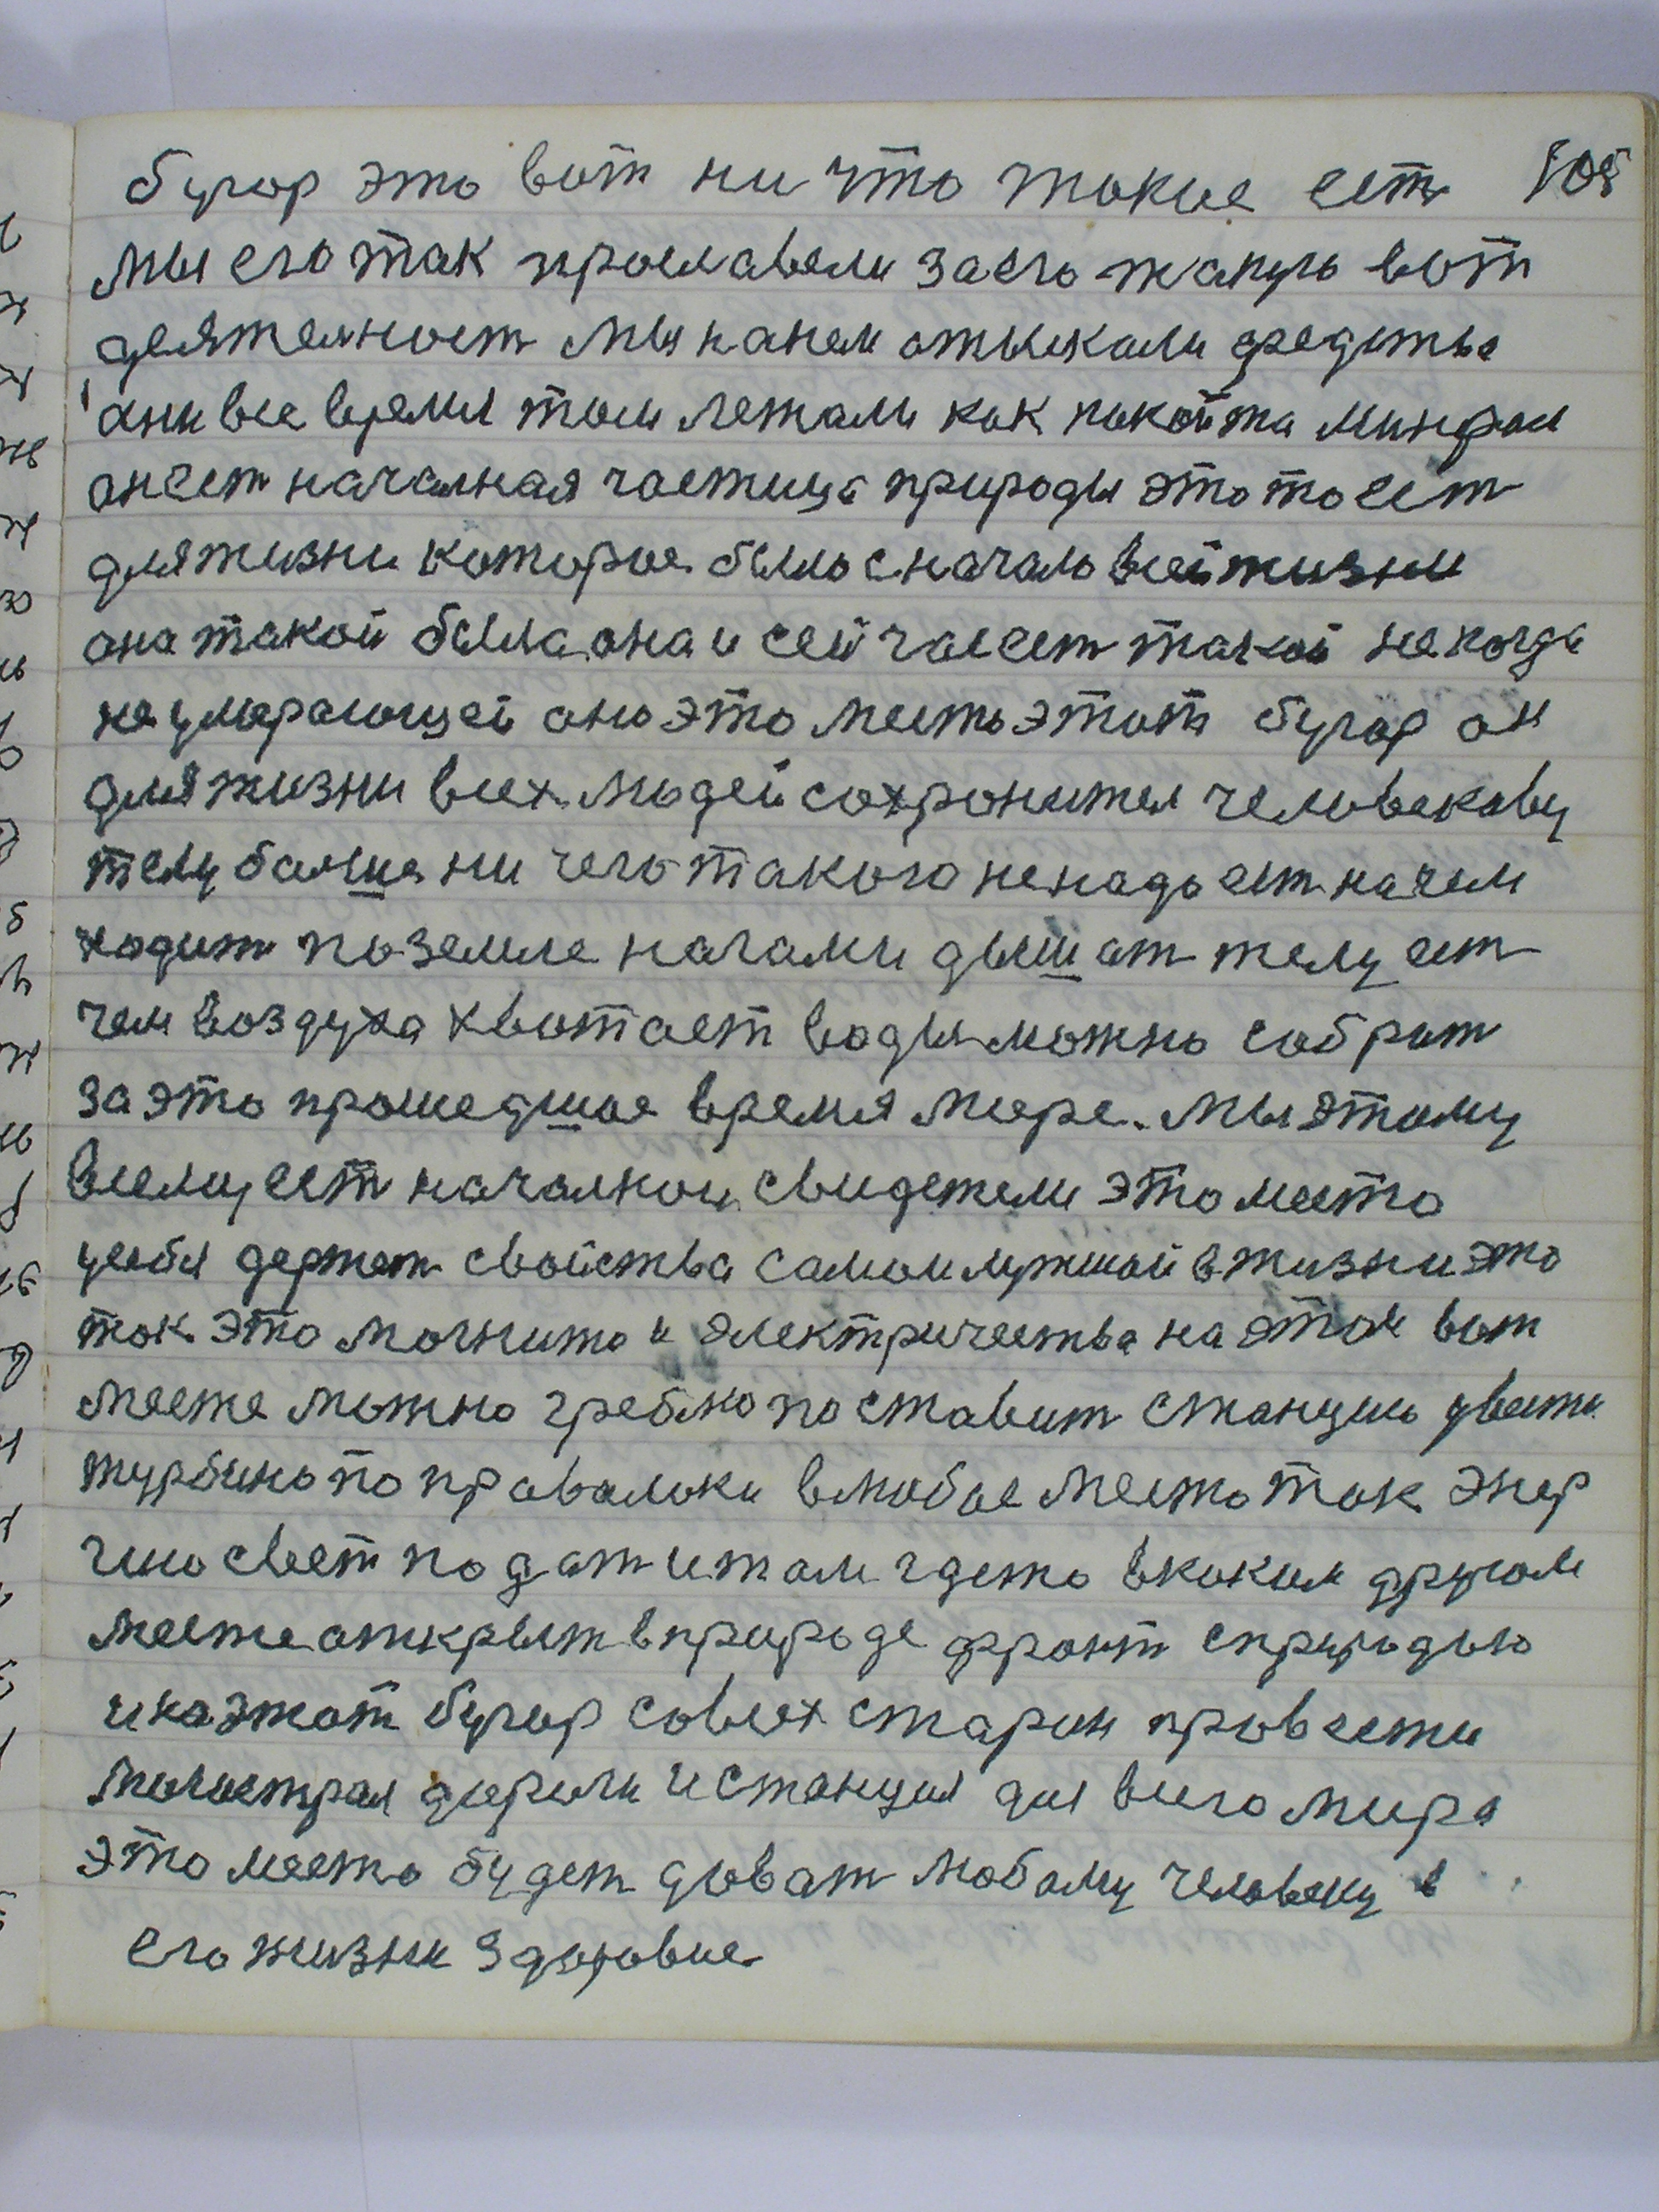 бугор это вот ни что токие ест 105
мы его так прославели заего такую вот
деятелност мы нанем отыскали средства
они все время там лежали как покойта минфол
он ест началная частица природы это то ест
для жизни которое было сначало всей жизни
она такой была она и сейчас ест такой некогда
не умерающей оно это место этот бугор он
для жизни всех людей сохронител человекову
телу болше ни чего такого ненадо ест начем
ходит по земле ногами дышат телу ест
чем воздуха хвотает воды можно собрат
за это прошедшое время море. мы этому
всему ест началнои свидетели это место
усебя держет свойства самои лутшой в жизни это
ток это могнито и электричества на этом вот
месте можно греблю поставит станцию двести
турбино по провалоки влюбое место ток энер
гию свет подат и там где то вкаком другом
месте открыт вприроде фронт сприродою
и на этот бугор совсех старон провести
могострая дороги и станция для всего мира
это место будет доват любому человеку в
его жизни здоровие